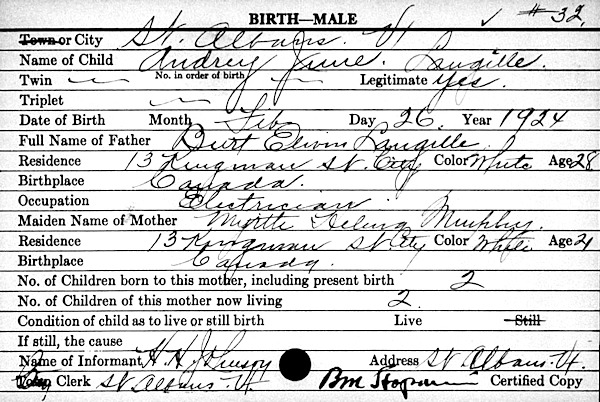 BIRTH—MALE ✓ # 32.
Town or City St. Albans. Vt
Name of Child Audrey June. Langille.
Twin No. in order of birth Legitimate Yes.
Triplet
Date of Birth Month Feb Day 26. Year 1924
Full Name of Father Burt Elwin Langille.
Residence 13 Kingman St. City Color White Age 28
Birthplace Canada.
Occupation Electrician
Maiden Name of Mother Myrtle Murphy.
Residence 13 Kingman St City Color White Age 21
Birthplace Canada.
No. of Children born to this mother, including present birth 2
No. of Children of this mother now living 2.
Condition of child as to live or still birth Live Still
If still, the cause
Name of Informant H. H. Address St Albans Vt.
Town Clerk St Albans Vt. Certified Copy